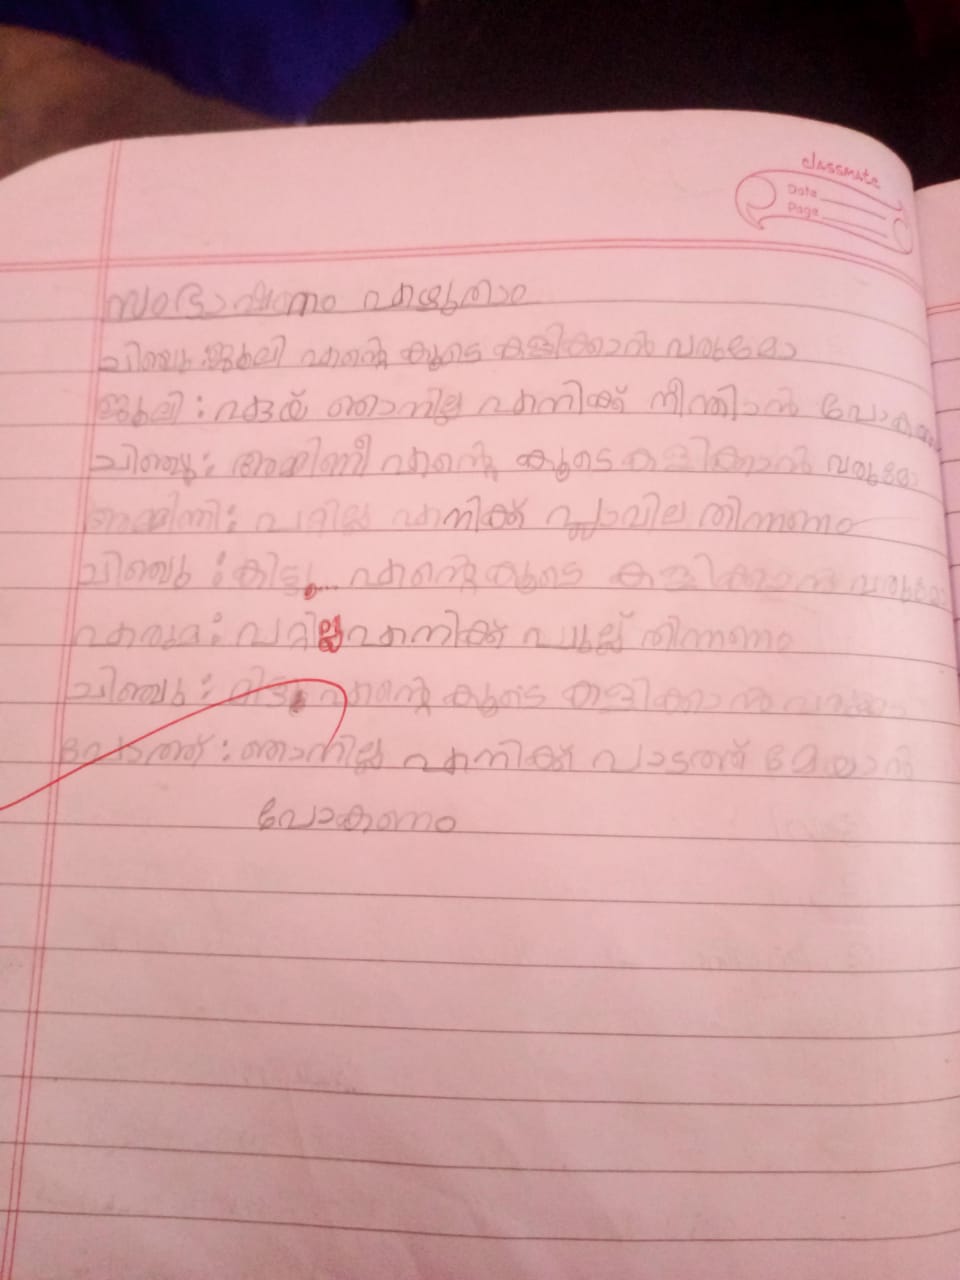 classmate
Date
Page
സംഭാഷണം എഴുതാം
ചിഞ്ചു: ജൂലി എന്റെ കൂടെ കളിക്കാൻ വരുമോ
ജൂലി : ഞാനില്ല എനിക്ക് നീന്താൻ പോകണം
ചിഞ്ചു : അമ്മിണി എന്റെ കൂടെ കളിക്കാൻ വരുമോ
അമ്മിണി : പറ്റില്ല എനിക്ക് പ്ലാവില തിന്നണം
ചിഞ്ചു : കിട്ടു എന്റെ കൂടെ കളിക്കാൻ വരുമോ
എരുമ : പറ്റില്ല എനിക്ക് പുല്ല് തിന്നണം
ചിഞ്ചു : എന്റെ കൂടെ കളിക്കാൻ വരുമോ
പോത്ത് : ഞാനില്ല എനിക്ക് പാടത്ത് മേയാൻ
പോകണം